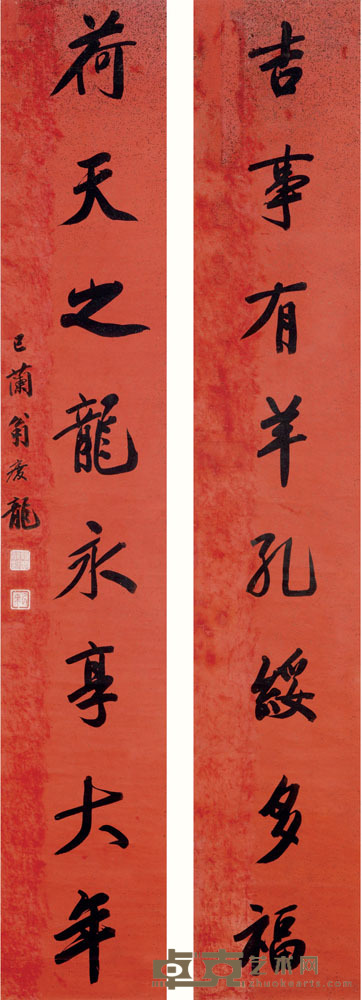 吉事有羊孔綏多福
荷天之龍永享大年
蘭翁慶龍
卓克艺术网